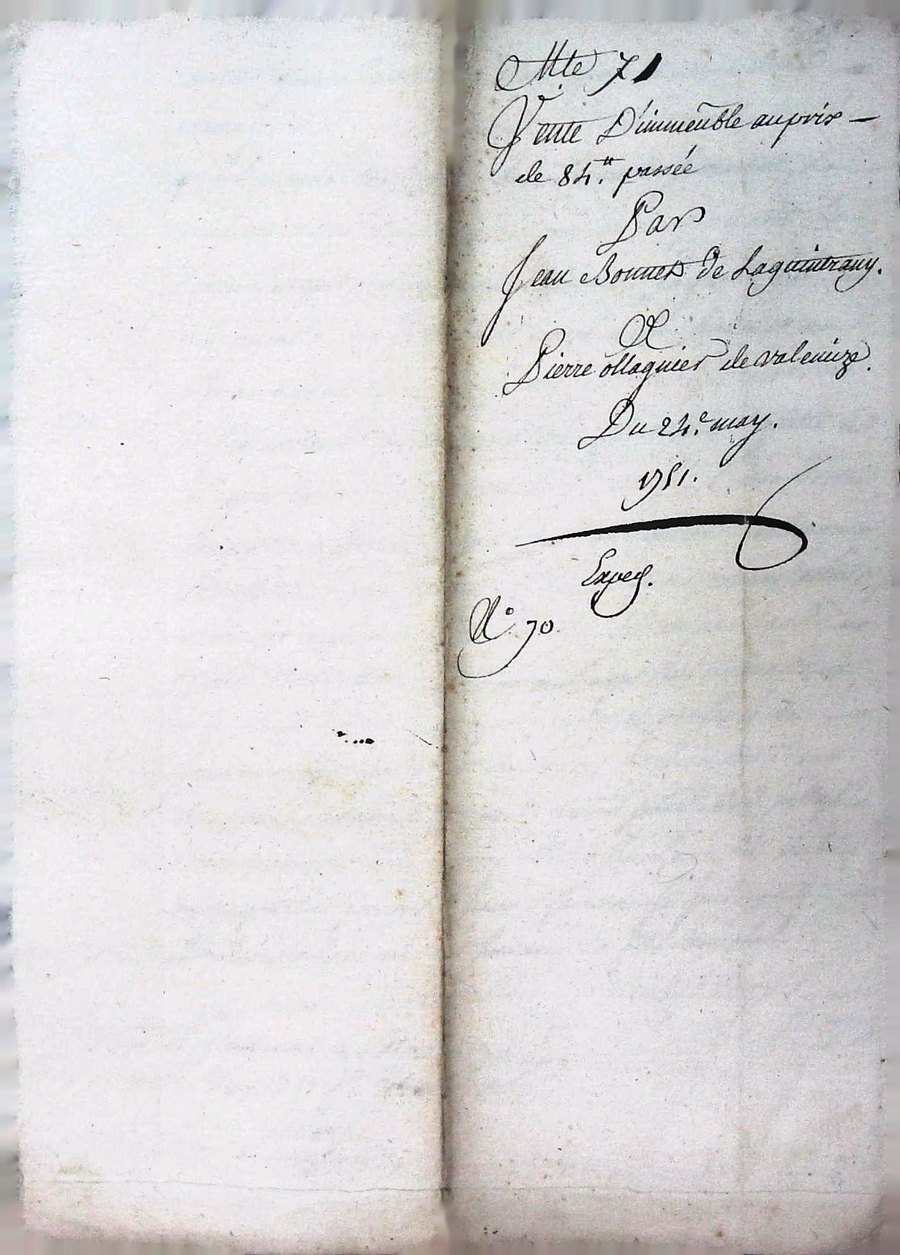 Mte 71
Vente D'immeuble au prix —
de 84.tt passée
Par
Jean Bonnet de Laguintrany.
A
Pierre ollagnier de valemize.
Du 24.e may.
1751.
Exped.
N.o 70